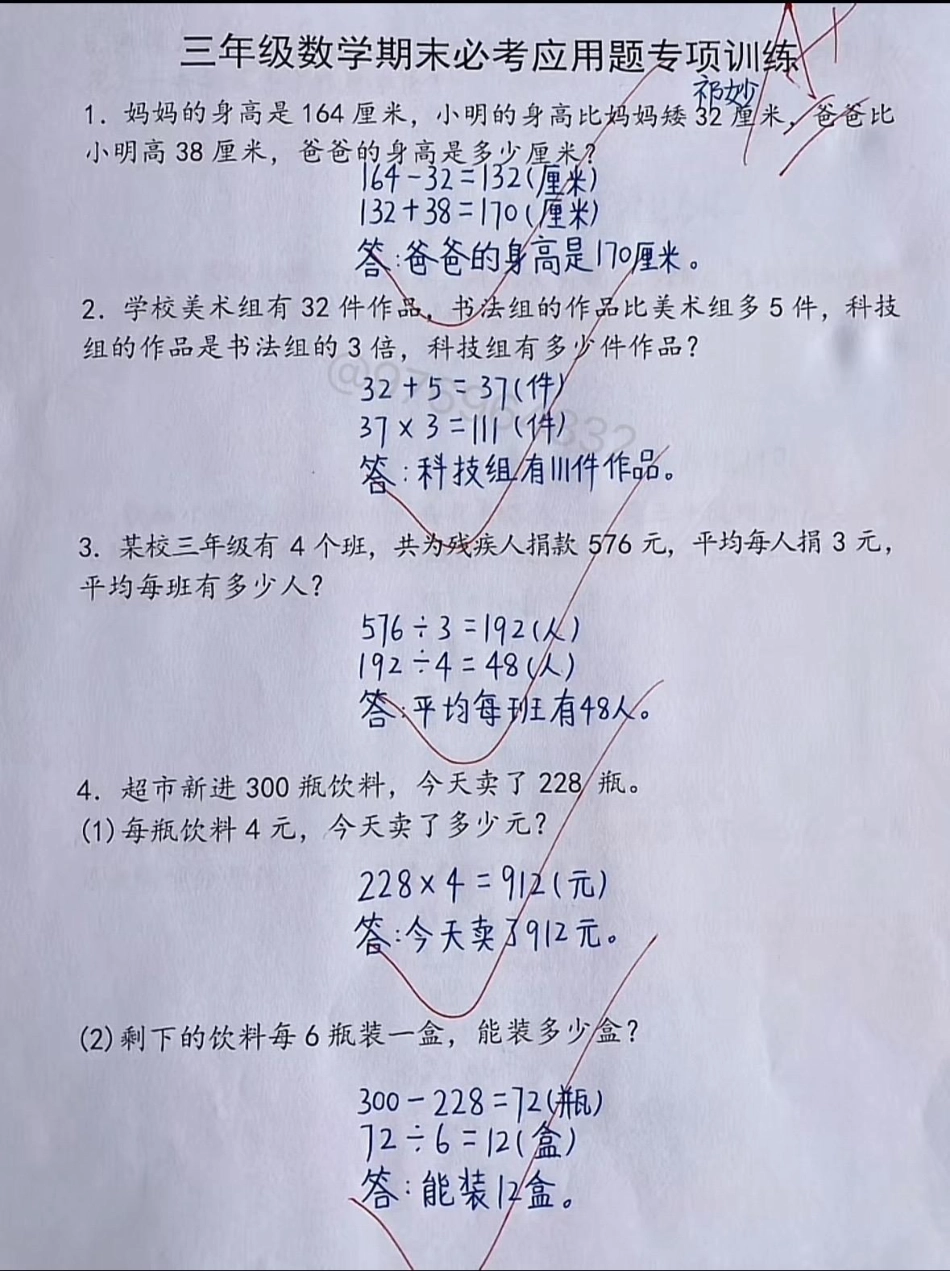 三年级数学期末必考应用题专项训练
祁妙
1. 妈妈的身高是 164 厘米，小明的身高比妈妈矮 32 厘米，爸爸比
小明高 38 厘米，爸爸的身高是多少厘米？
164-32=132(厘米)
132+38=170(厘米)
答:爸爸的身高是170厘米。
2. 学校美术组有 32 件作品，书法组的作品比美术组多 5 件，科技
组的作品是书法组的 3 倍，科技组有多少件作品？
32+5=37(件)
37×3=111(件)
答:科技组有111件作品。
3. 某校三年级有 4 个班，共为残疾人捐款 576 元，平均每人捐 3 元，
平均每班有多少人？
576÷3=192(人)
192÷4=48(人)
答:平均每班有48人。
4. 超市新进 300 瓶饮料，今天卖了 228 瓶。
(1)每瓶饮料 4 元，今天卖了多少元？
228×4=912(元)
答:今天卖了912元。
(2)剩下的饮料每 6 瓶装一盒，能装多少盒？
300-228=72(瓶)
72÷6=12(盒)
答:能装12盒。